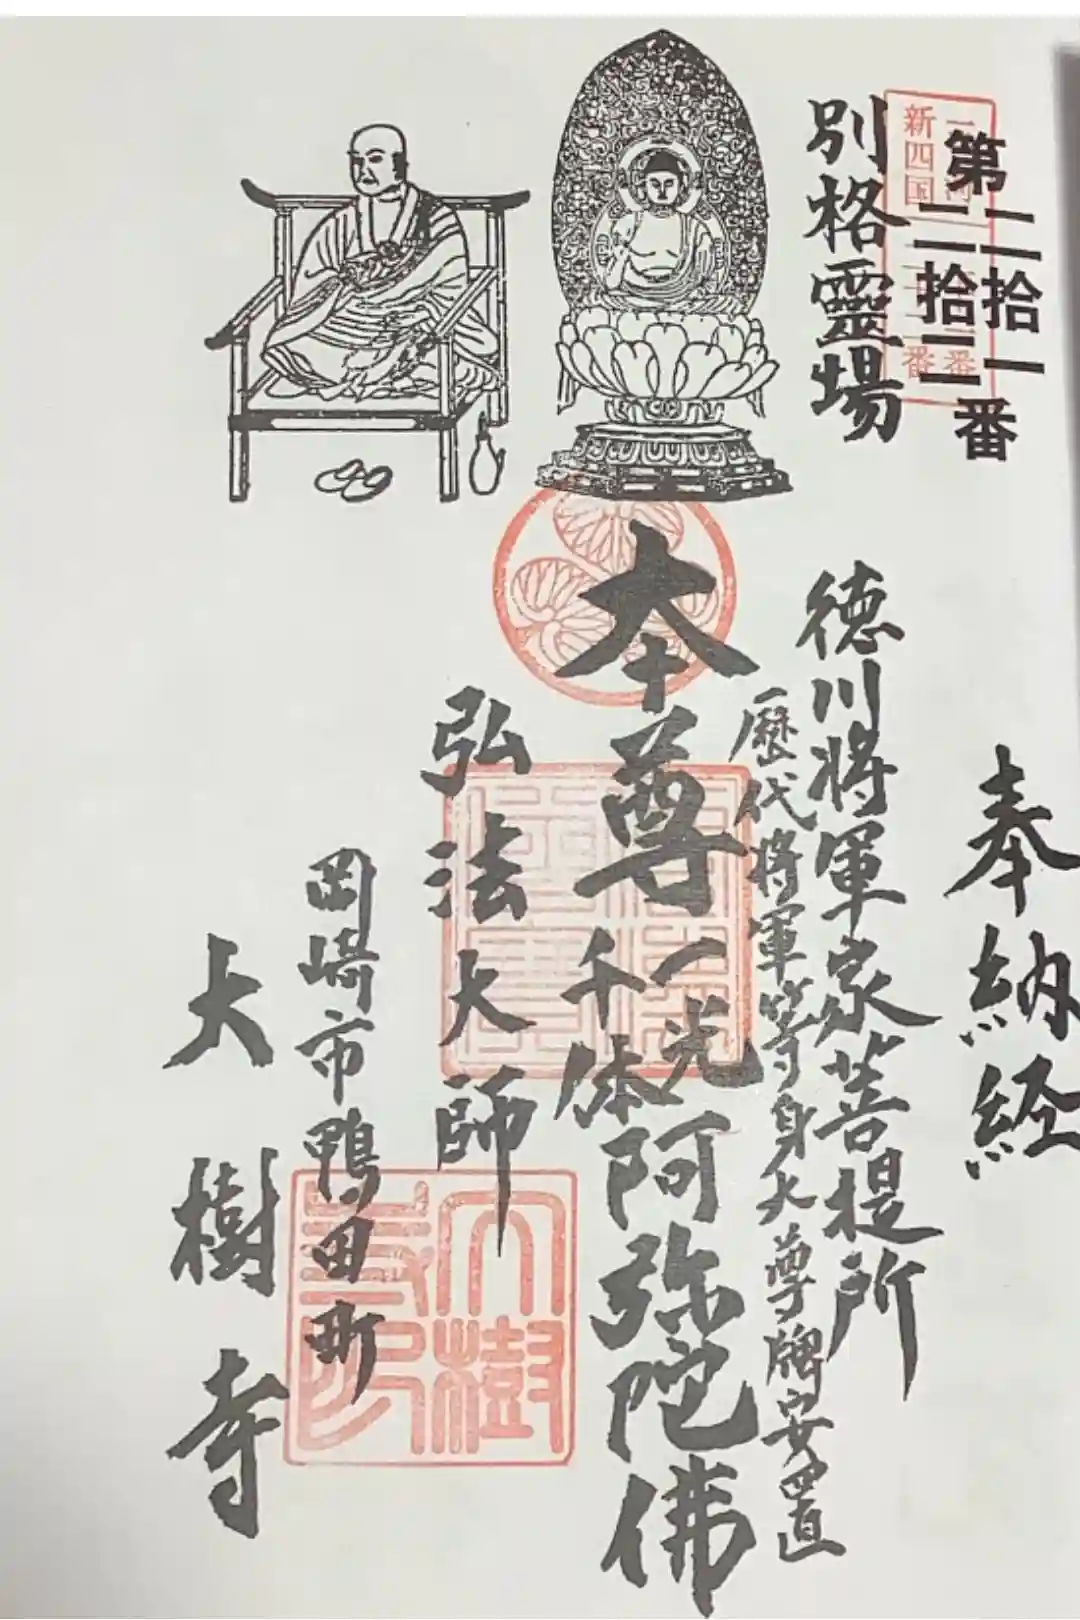 奉納経
第二拾一
二拾二番
新四国
番
番
別格靈場
徳川將軍家菩提所
歴代將軍等身大尊牌安置
本尊一光千体阿弥陀佛
弘法大師
岡崎市鴨田町
大樹寺
大樹
寺印